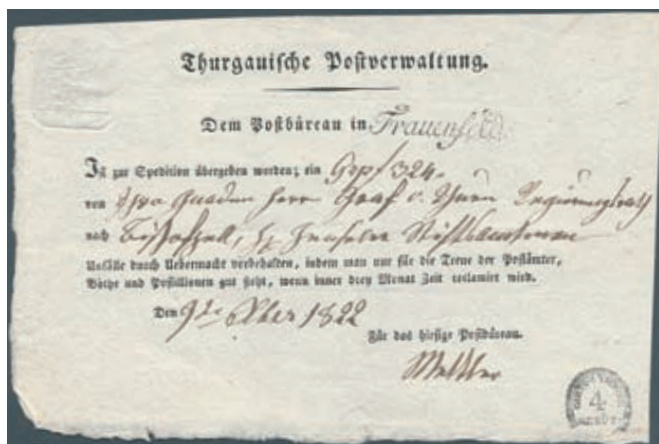 Thurgauische Postverwaltung.
Dem Postbüreau in Frauenfeld
Ist zur Spedition übergeben worden; ein Grp f 324.
von Ihro Gnaden Herr Graf v. Thurn Regierungsrath
nach Bischofzell,
Unfälle durch Uebermacht vorbehalten, indem man nur für die Treue der Postämter,
Böthe und Postillionen gut steht, wenn inner drey Monat Zeit reclamirt wird.
Den 9te 8ber 1822
Für das hiesige Postbüreau.
4